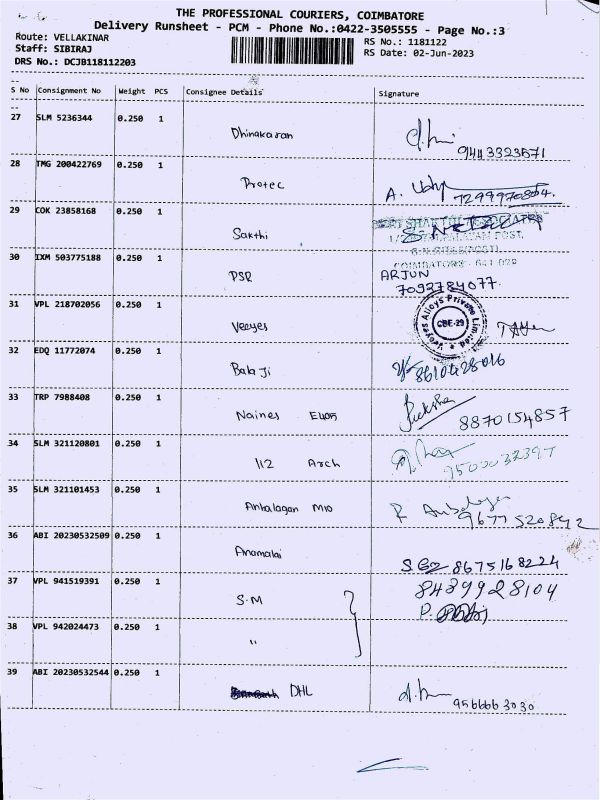 THE PROFESSIONAL COURIERS, COIMBATORE
Delivery Runsheet - PCM - Phone No.:0422-3505555 - Page No.:3
Route: VELLAKINAR
RS No.: 1181122
Staff: SIBIRAJ
RS Date: 02-Jun-2023
DRS No.: DCJB118112203
S No Consignment No Weight PCS Consignee Details Signature
27 SLM 5236344 0.250 1
Dhinakaran
9443323571
28 TMG 200422769 0.250 1
Protec
A.
29 COK 23858168 0.250 1
Sakthi
COIMBATORE - 641 029
30 IXM 503775188 0.250 1
PSR
ARJUN
7093784077.
31 VPL 218702056 0.250 1
Veeyes
Veeyes Alloys Private Limited
CBE-29
32 EDQ 11772074 0.250 1
Balaji
8610428016
33 TRP 7988408 0.250 1
Naines
8870154857
34 SLM 321120801 0.250 1
112 Arch
9500032397
35 SLM 321101453 0.250 1
Anbalagan M10
9677520842
36 ABI 20230532509 0.250 1
Anamalai
8675168224
37 VPL 941519391 0.250 1
S.M
8439928104
38 VPL 942024473 0.250 1
"
39 ABI 20230532544 0.250 1
DHL
9566663030